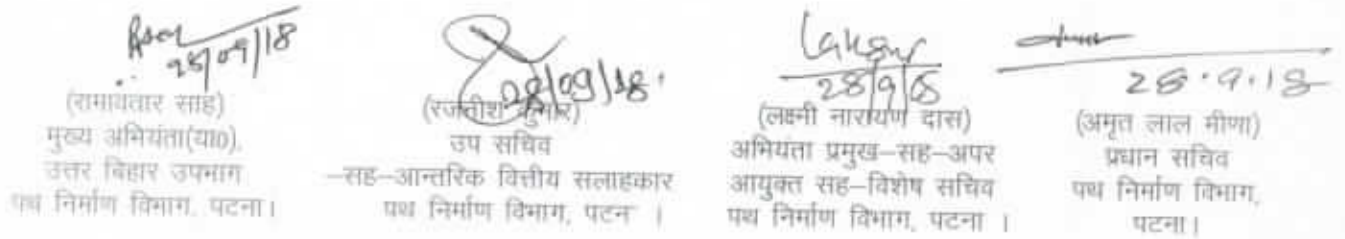 28/09/18
(रामावतार साह)
मुख्य अभियंता(या0),
उत्तर बिहार उपभाग
पथ निर्माण विभाग, पटना।
28/09/18.
(रजनीश कुमार)
उप सचिव
-सह-आन्तरिक वित्तीय सलाहकार
पथ निर्माण विभाग, पटन ।
28/9/18
(लक्ष्मी नारायण दास)
अभियंता प्रमुख-सह-अपर
आयुक्त सह-विशेष सचिव
पथ निर्माण विभाग, पटना ।
28.9.18
(अमृत लाल मीणा)
प्रधान सचिव
पथ निर्माण विभाग,
पटना।